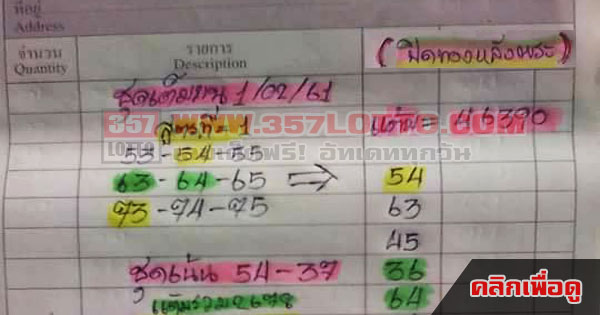 ที่อยู่
Address
จำนวน
Quantity
รายการ
Description
(ปิดทองหลังพระ)
ชุดเต็มบน 1/02/61
357
LOTTO
WWW.357LOTTO.COM
สูตรที่ 1
แต้ม= 46390
53-54-55
ฟรี! อัพเดททุกวัน
63-64-65 ⇒ 54
73-74-75 63
45
ชุดเน้น 54-37 36
แต้มรวม 2678 64
คลิกเพื่อดู